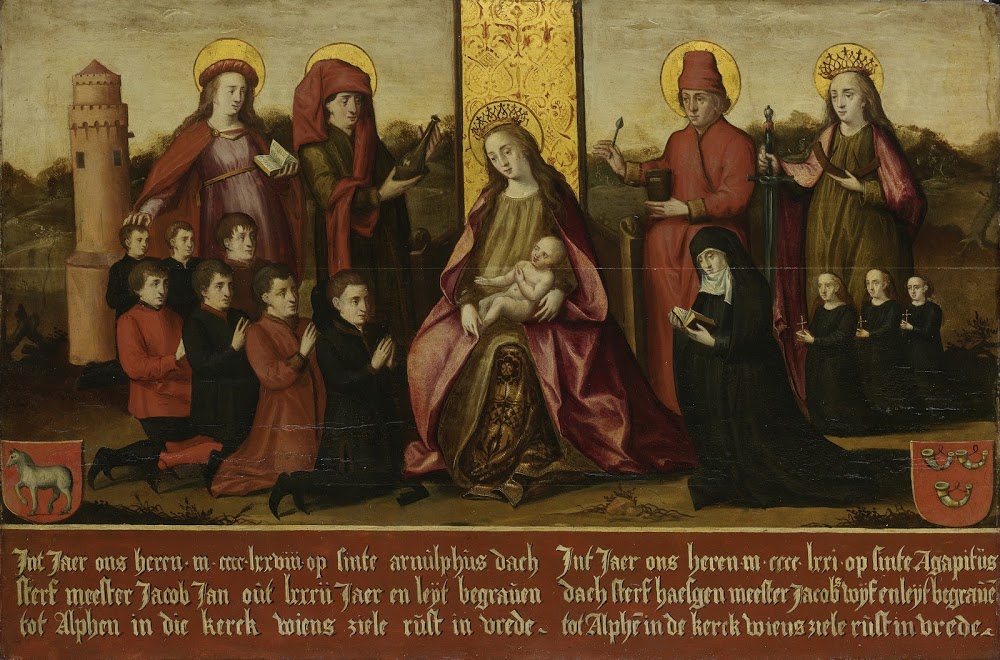 Int Jaer ons heren · m · cccc · lxxviii · op sinte arnulphus dach
sterf meester Jacob Jan out lxxii Jaer en leyt begraven
tot Alphen in die kerck wiens ziele rust in vrede ·
Int Jaer ons heren · m · cccc lxxi · op sinte Agapitus
dach sterf haesgen meester Jacobs wyf en leyt begravē
tot Alphē in de kerck wiens ziele rust in vrede ·